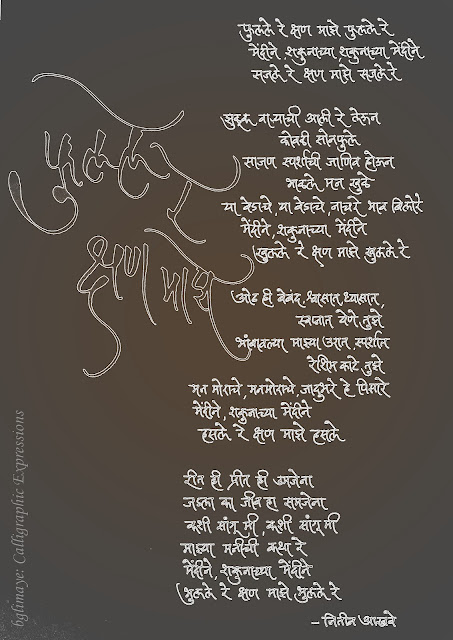 फुलले रे
क्षण माझे
फुलले रे क्षण माझे फुलले रे
मेंदीने, शकुनाच्या, शकुनाच्या मेंदीने
सजले रे क्षण माझे सजले रे
झुळूक वाऱ्याची आली रे लेऊन
कोवळी सोनफुले
साजण स्पर्शाची जाणिव होऊन
भाबले मन खुळे
या वेडाचे, या वेडाचे, नाचरे भाव बिलोरे
मेंदीने, शकुनाच्या मेंदीने
खुलले रे क्षण माझे खुलले रे
ओढ ही बेबंद, श्वासात, ध्यासात,
स्वप्नात येणे तुझे
भांबावल्या माझ्या आत, स्पर्शात
रेशिम काटे तुझे
मन मोराचे, मनमोराचे, जादुभरे हे पिसारे
मेंदीने, शकुनाच्या मेंदीने
हसले रे क्षण माझे हसले
रीत ही प्रीत ही उमजेना
जडला का जीव हा समजेना
कशी सांगू मी, कशी सांगू मी
माझ्या मनीची कथा रे
मेंदीने, शकुनाच्या मेंदीने
भुलले रे क्षण माझे भुलले रे
– नितीन आखवे
bglimaye: Calligraphic Expressions